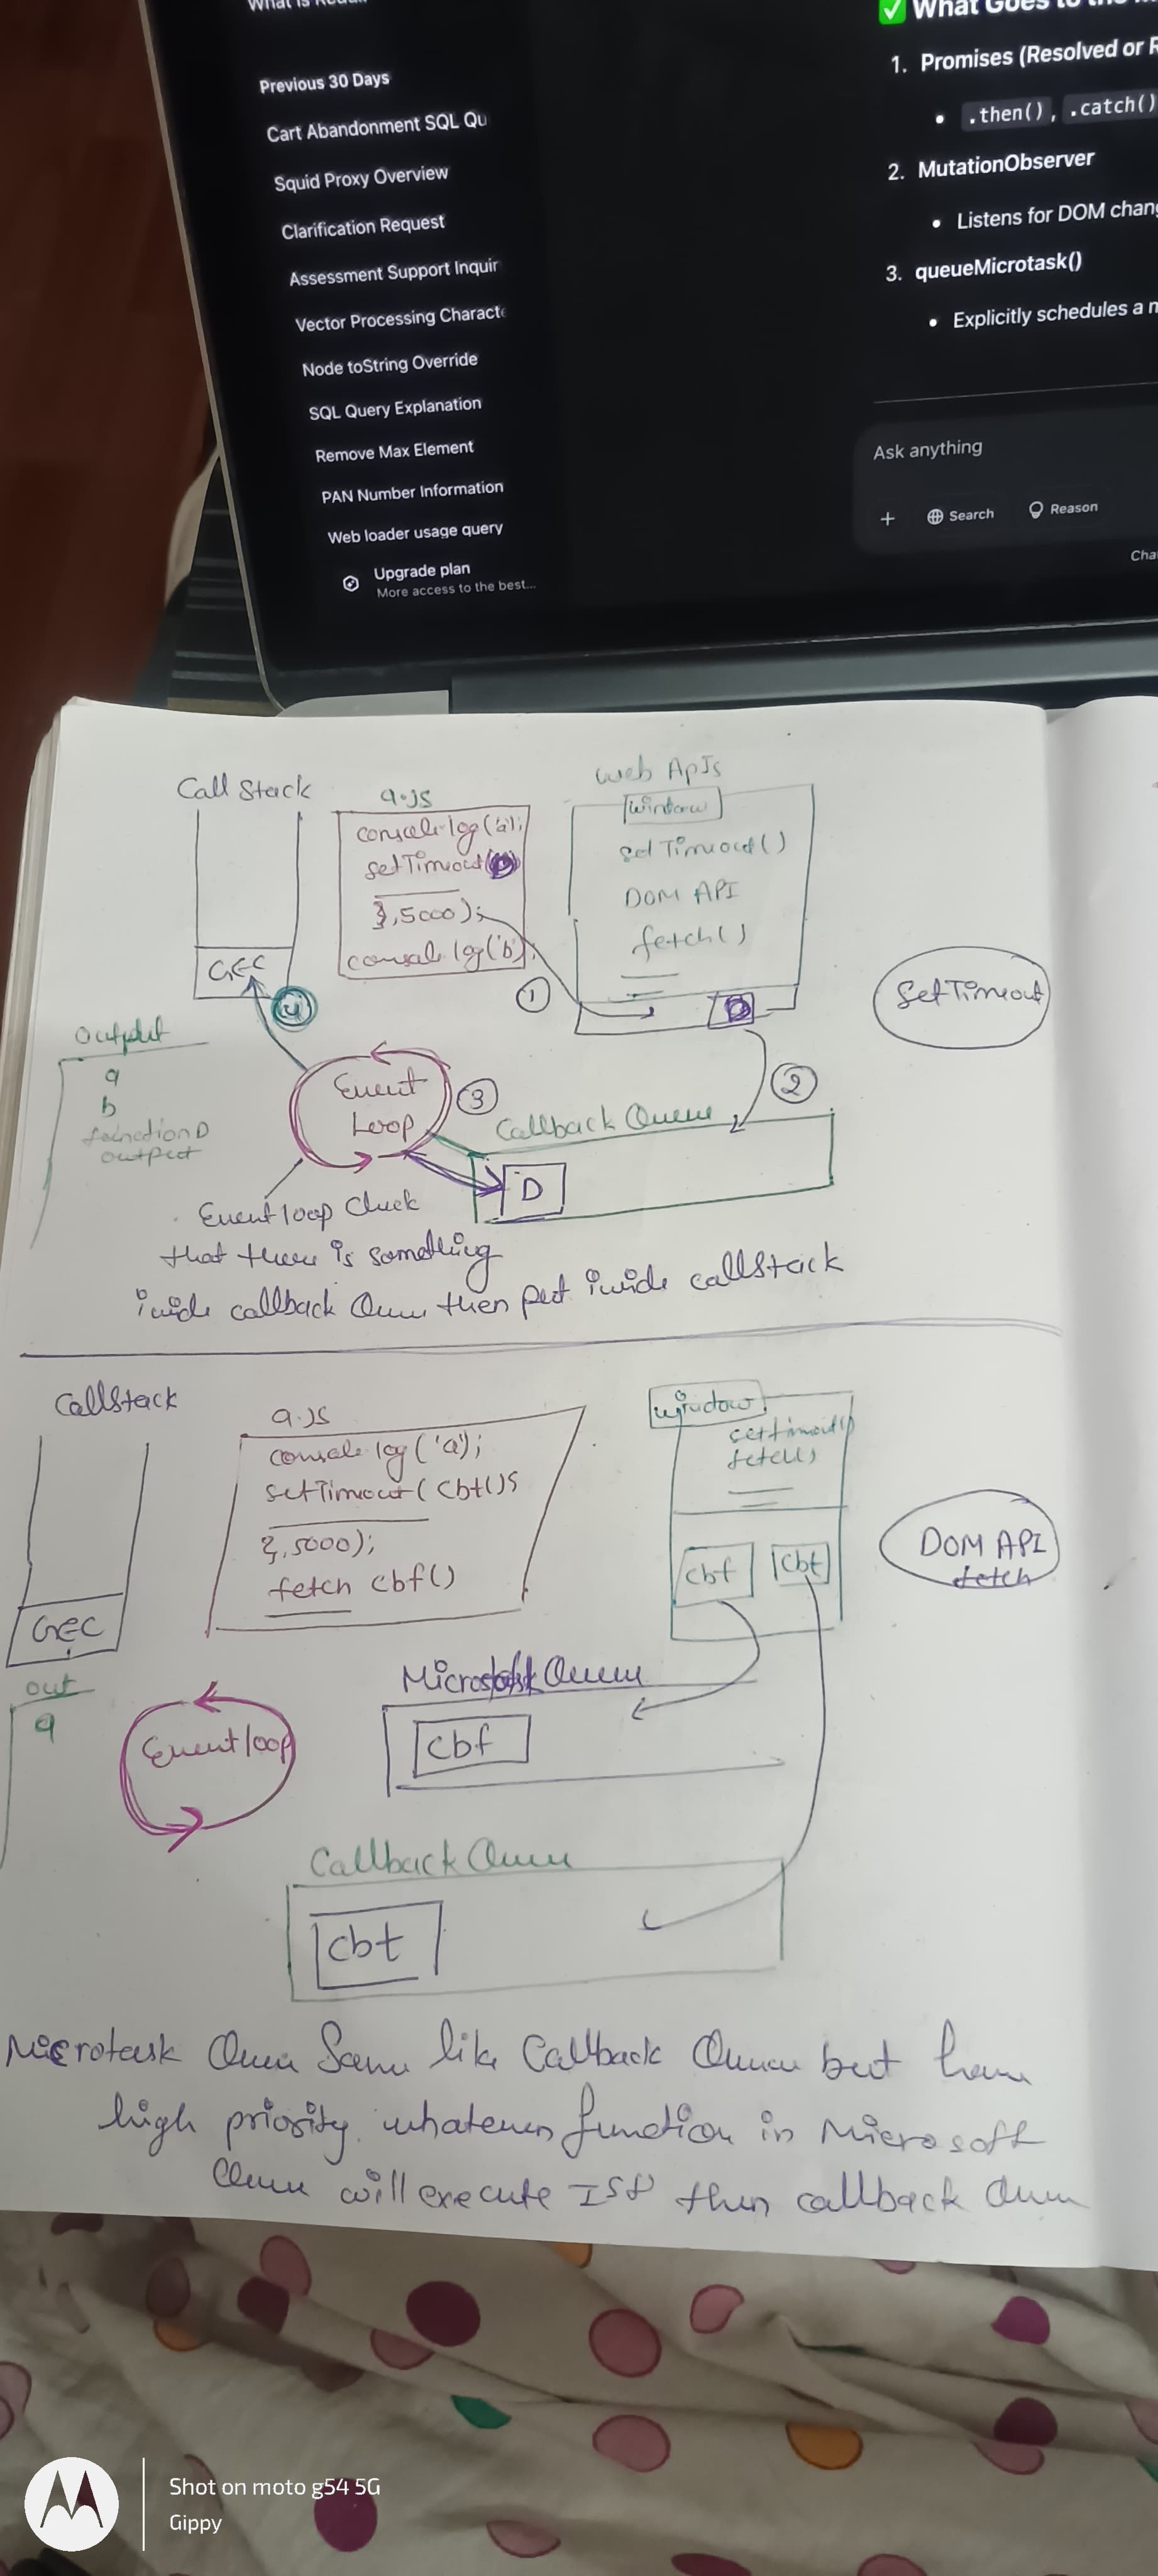 Previous 30 Days
Cart Abandonment SQL Qu
Squid Proxy Overview
Clarification Request
Assessment Support Inquir
Vector Processing Characte
Node toString Override
SQL Query Explanation
Remove Max Element
PAN Number Information
Web loader usage query
Upgrade plan
More access to the best...
✅ What Goes to the
1. Promises (Resolved or R
• .then(), .catch()
2. MutationObserver
• Listens for DOM chang
3. queueMicrotask()
• Explicitly schedules a m
Ask anything
+ Search Reason
Cha
Call Stack
GEC
a.js
console.log('a');
setTimeout(
},5000);
console.log('b');
Web APIs
window
setTimeout()
DOM API
fetch()
D
SetTimeout
1
2
3
4
Output
a
b
function D
output
Event
Loop
Callback Queue
D
Event loop Check
that there is something
inside callback Queue then put inside callStack
CallStack
GEC
a.js
console.log('a');
setTimeout( cbt(){
},5000);
fetch cbf()
window
settimeout()
fetch()
cbf
cbt
DOM API
fetch
Microtask Queue
cbf
out
a
Event loop
Callback Queue
cbt
Microtask Queue Same like Callback Queue but have
high priority. whatever function in Microsoft
Queue will execute Ist then callback Queue
Shot on moto g54 5G
Gippy